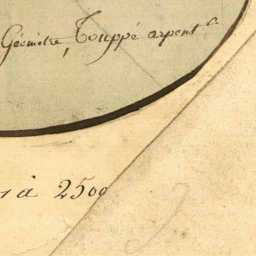 Géomètre, Touppé arpentr.
1 à 2500